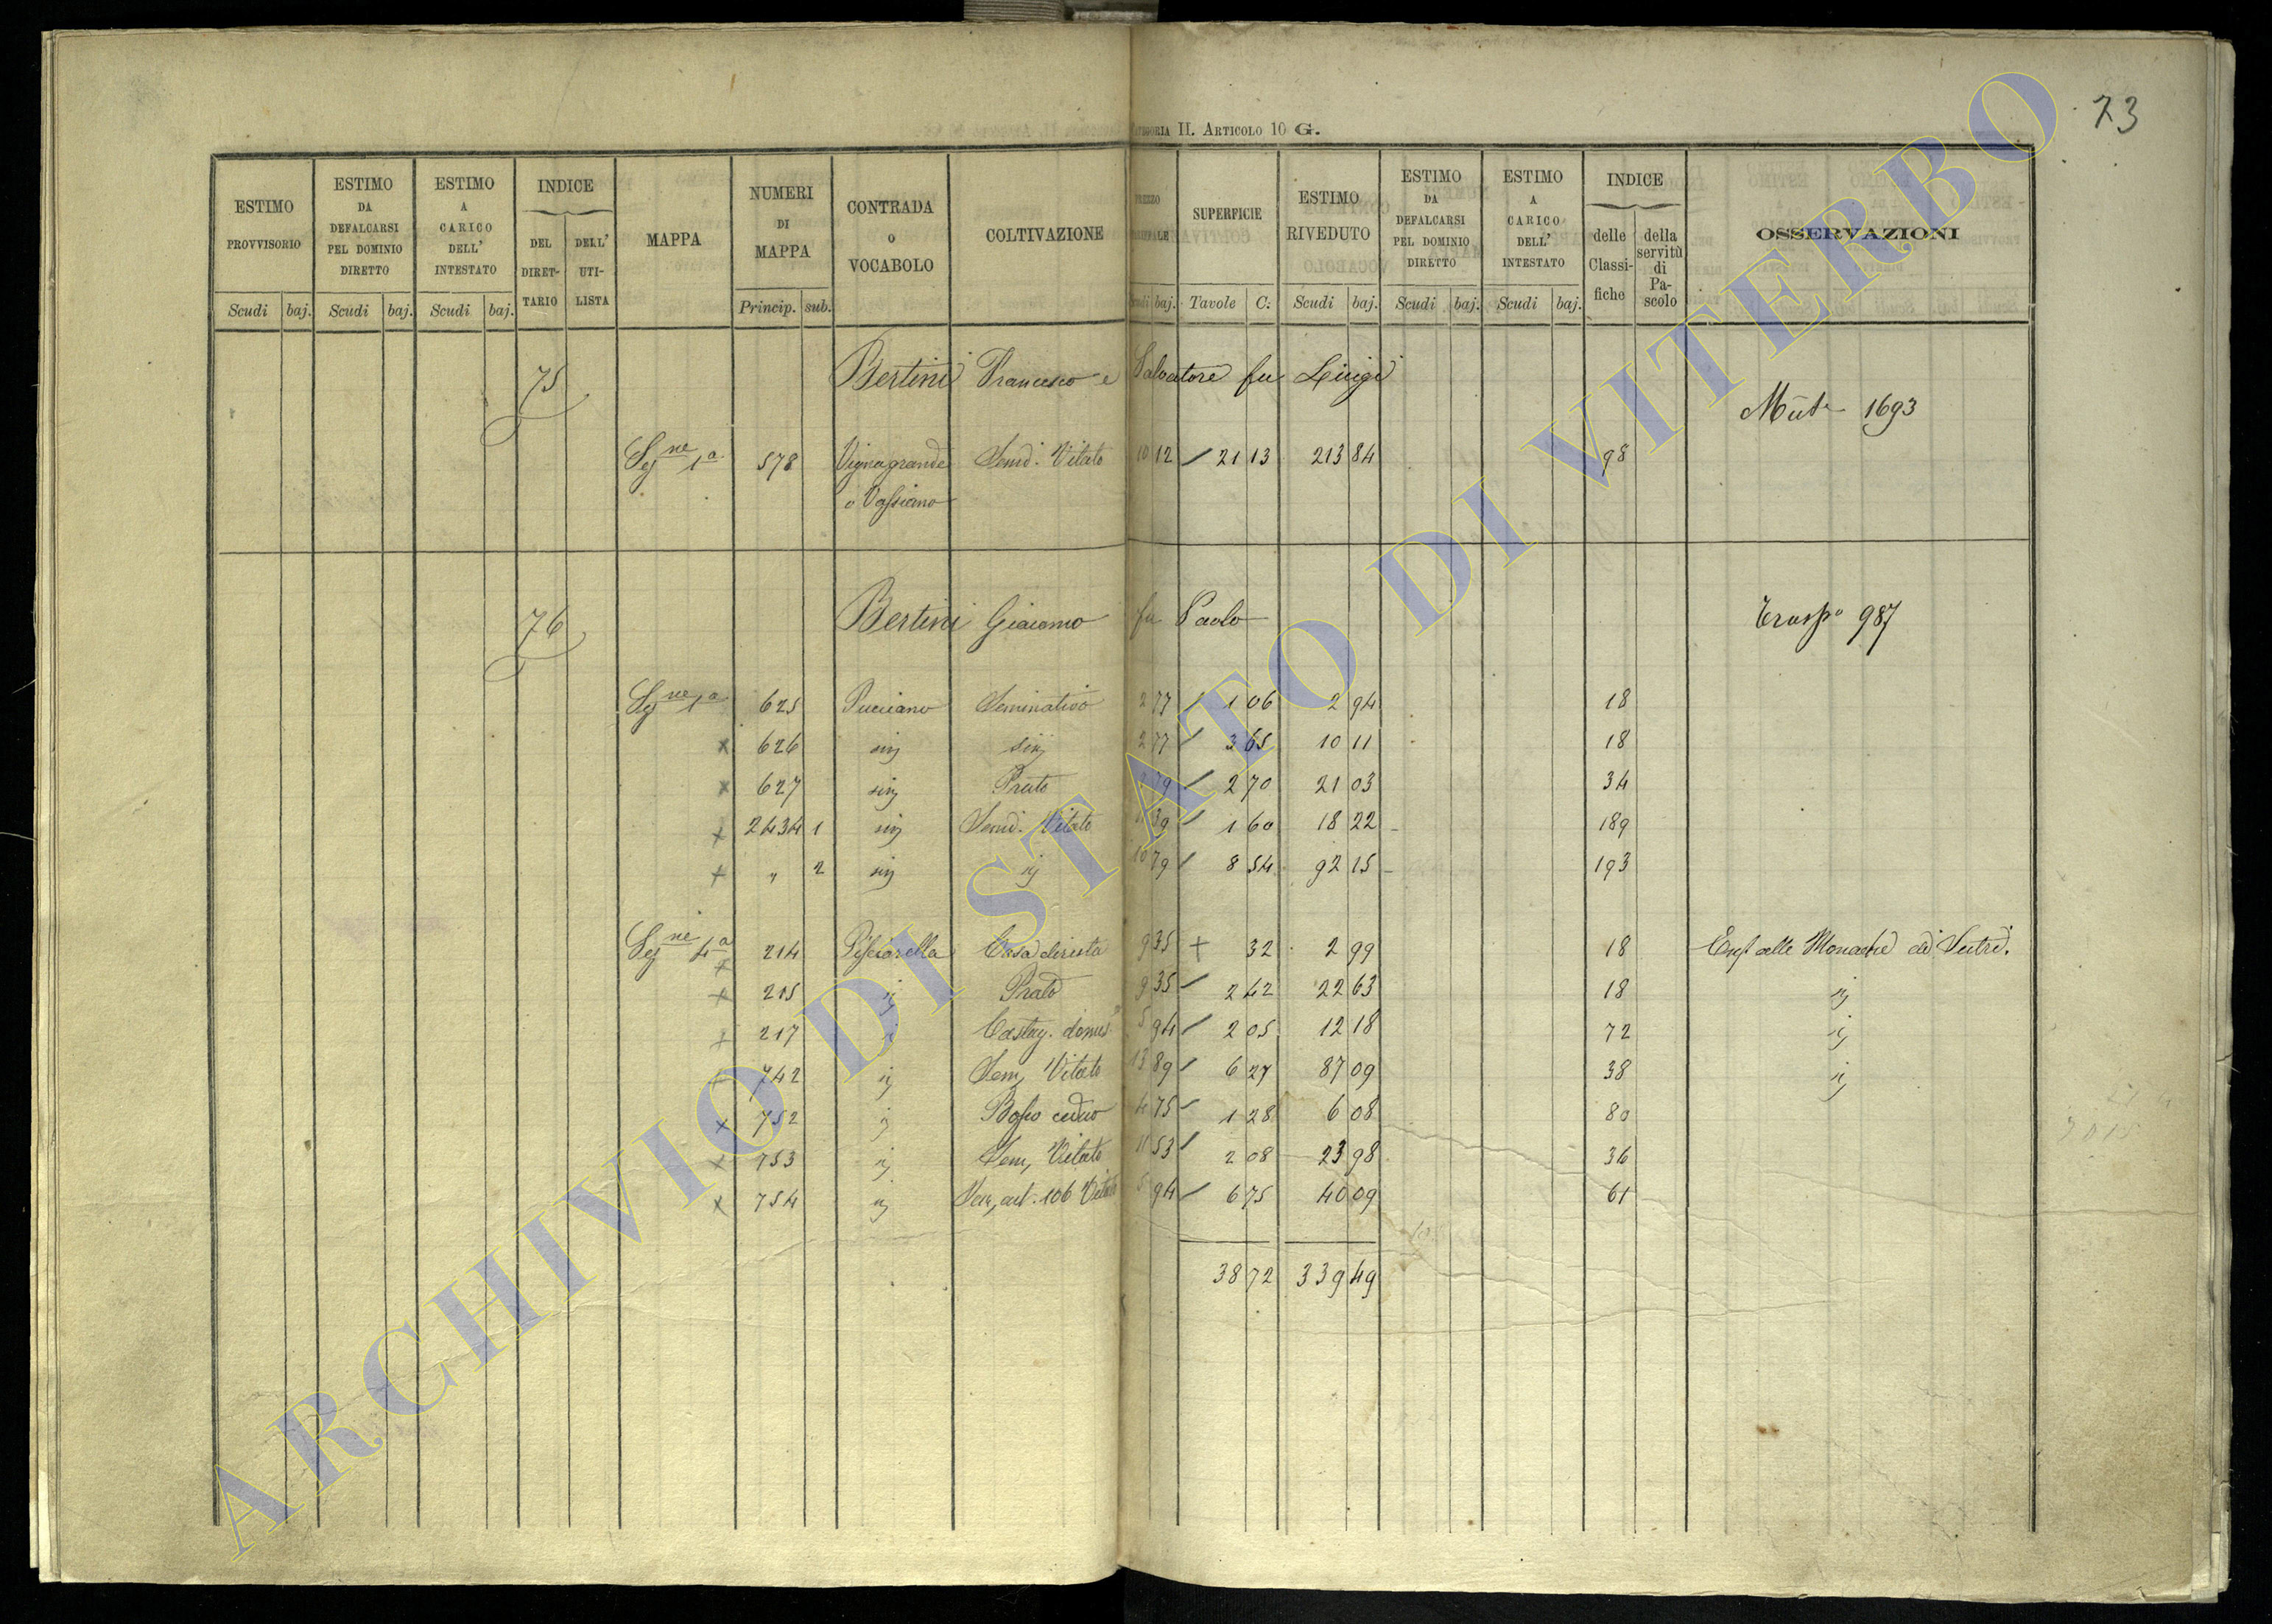 73
CATEGORIA II. ARTICOLO 10 G.
ESTIMO PROVVISORIO Scudi baj.
ESTIMO DA DEFALCARSI PEL DOMINIO DIRETTO Scudi baj.
ESTIMO A CARICO DELL' INTESTATO Scudi baj.
INDICE DEL DIRETTARIO DELL' UTILISTA
MAPPA
NUMERI DI MAPPA Princip. sub.
CONTRADA o VOCABOLO
COLTIVAZIONE
PREZZO Scudi baj.
SUPERFICIE Tavole C:
ESTIMO RIVEDUTO Scudi baj.
ESTIMO DA DEFALCARSI PEL DOMINIO DIRETTO Scudi baj.
ESTIMO A CARICO DELL' INTESTATO Scudi baj.
INDICE delle Classifiche della servitù di Pascolo
OSSERVAZIONI
75 Bertini Francesco e Salvatore fu Luigi
1693
Segne 1a 578 Vignagrande Semo. Vitato 10 12 / 21 13 213 84 98
o Vassiano
76 Bertini Giacomo fu Paolo Traspo 987
Segne 1a 625 Pucciano Seminativo 2 77 / 1 06 2 94 18
x 626 sinj sinj 2 77 / 3 65 10 11 18
x 627 sinj Prato 79 / 2 70 21 03 34
x 2434 1 sinj Semo. Vitato 39 / 1 60 18 22 189
x " 2 sinj ij 10 79 / 8 54 92 15 193
Segne 4a x 214 Pisciarella Casa diruta 9 35 + 32 2 99 18 Enft alle Monache di Sutri.
x 215 ij Prato 9 35 / 2 42 22 63 18 ij
x 217 Castag. domes 5 94 / 2 05 12 18 72 ij
x 742 ij Sem, Vitato 13 89 / 6 27 87 09 38 ij
x 752 ij Bosco ceduo 4 75 / 1 28 6 08 80
x 753 ij Sem, Vitato 11 53 / 2 08 23 98 36
x 754 ij Sem, art. 106 Vitato 5 94 / 6 75 40 09 61
38 72 339 49
ARCHIVIO DI STATO DI VITERBO